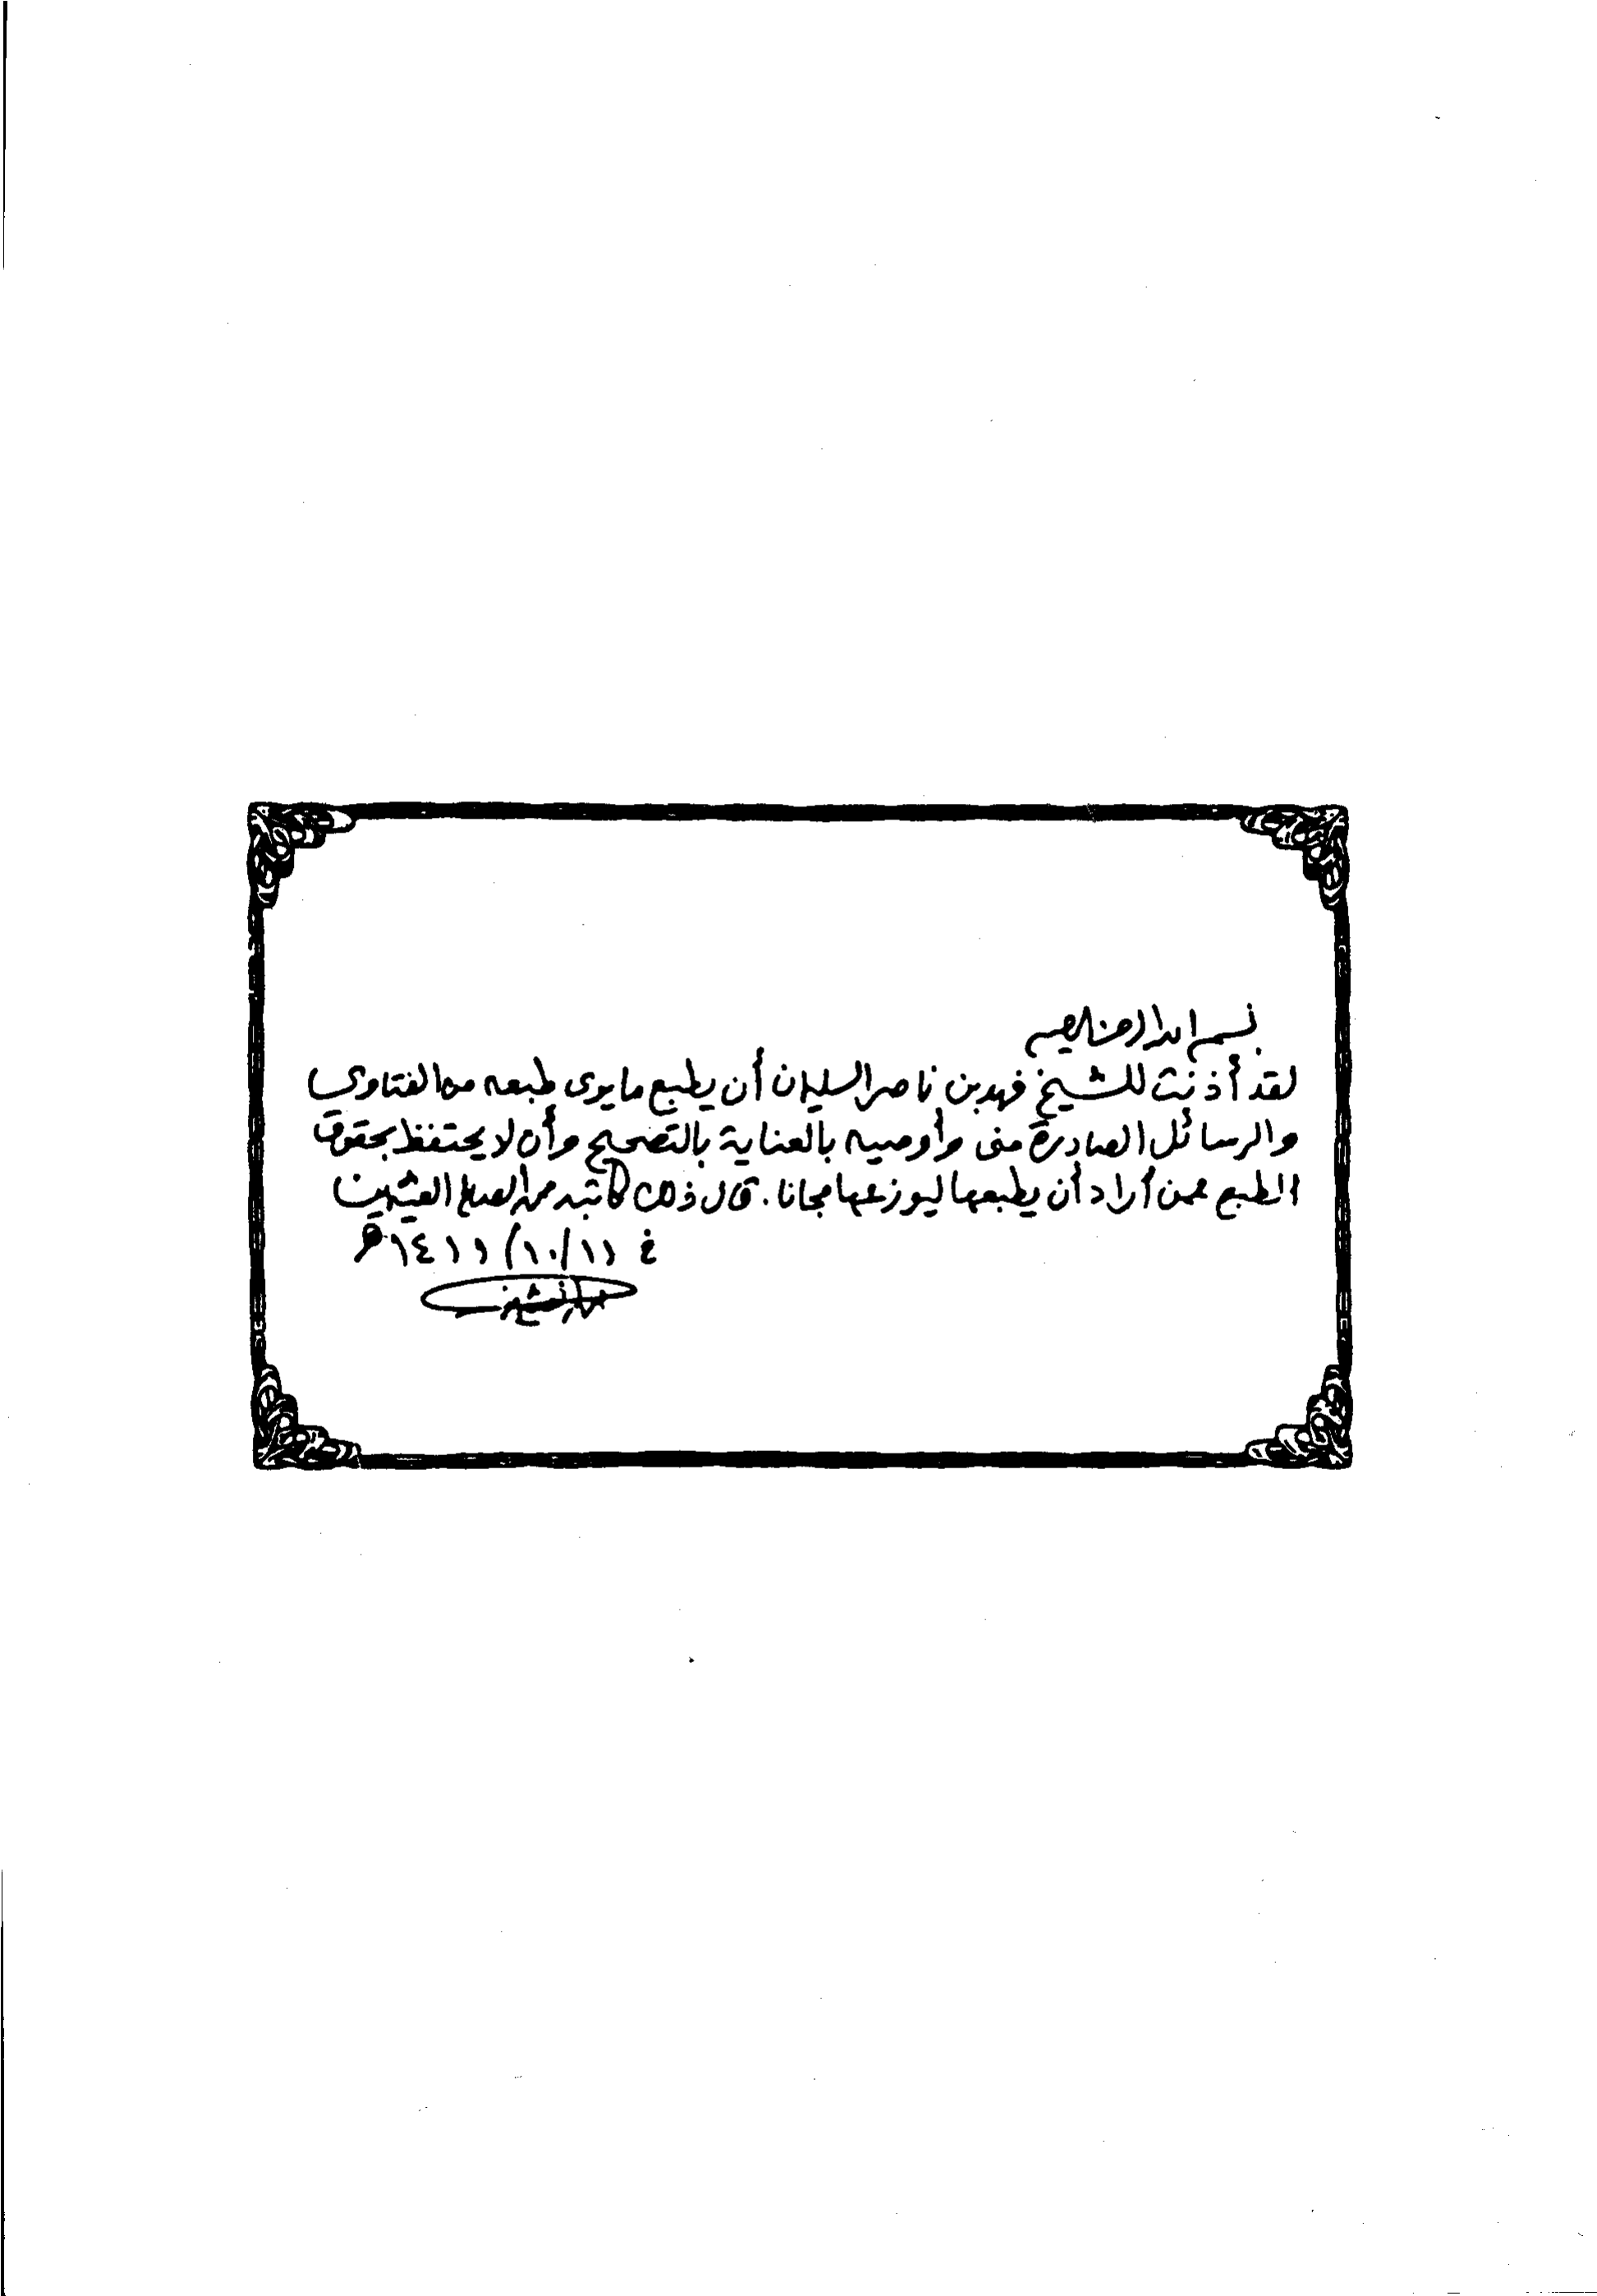 بسم الله الرحمن الرحيم
لقد أذنت للشيخ فهد بن ناصر السليمان أن يطبع ما يرى طبعه من الفتاوى
والرسائل الصادرة منى وأوصيه بالعناية بالتصحيح وأن لا يحتفظ بحقوق
الطبع عمن أراد أن يطبعها ليوزعها مجانا. قال ذلك كاتبه محمد الصالح العثيمين
في ١١/١٠/١٤١١هـ